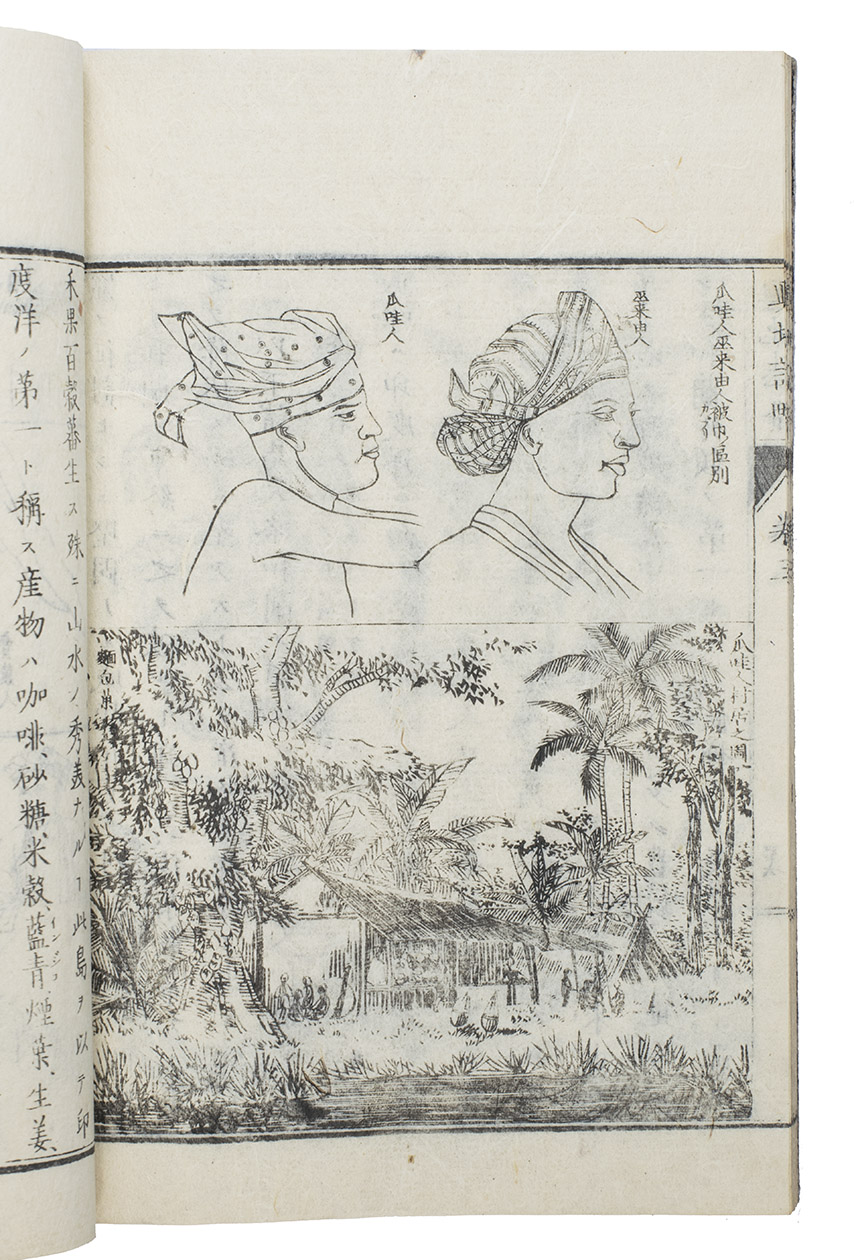 輿地誌略
卷三
瓜哇人巫来由人被巾ノ區別
巫来由人
瓜哇人
瓜哇人村居之圖
禾果百穀蕃生ス殊ニ山水ノ秀美ナルヿ此島ヲ以テ印
度洋ノ第一ト稱ス産物ハ咖啡、砂糖、米穀、藍青、煙葉、生姜、